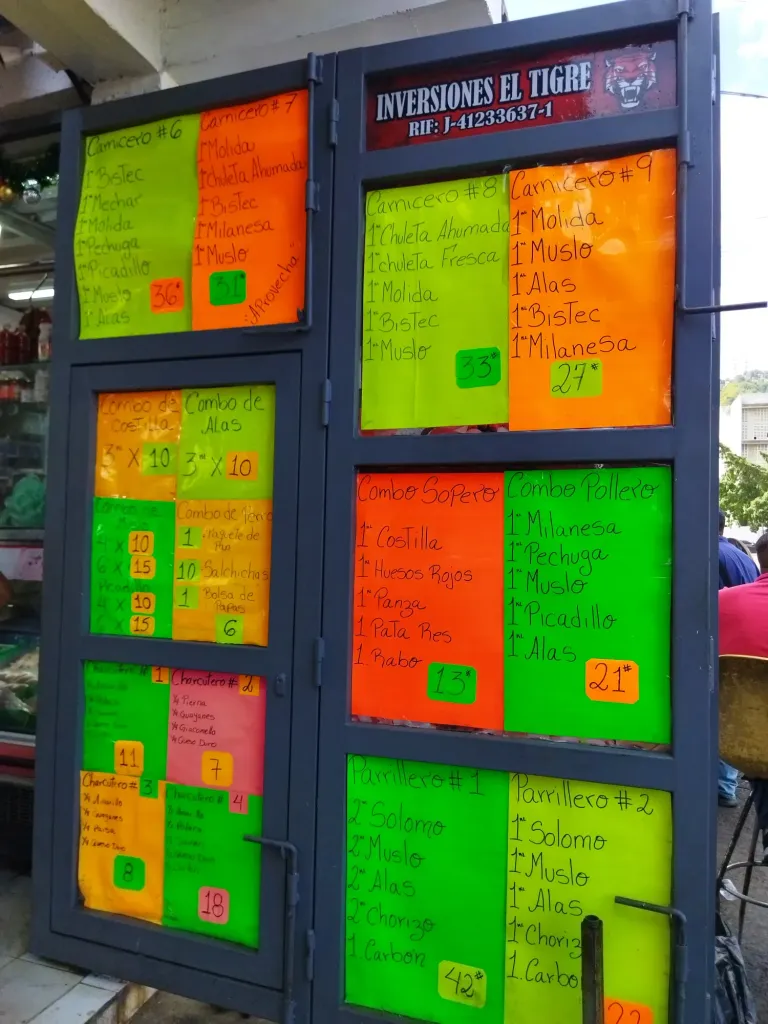 INVERSIONES EL TIGRE
RIF: J-41233637-1
Carnicero #6
1ᴷ BisTec
1ᴷ Mechar
1ᴷ Molida
1ᴷ Pechuga
1ᴷ Picadillo
1ᴷ Muslo
1ᴷ Alas
36*
Carnicero #7
1ᴷ Molida
1ᴷ Chuleta Ahumada
1ᴷ BisTec
1ᴷ Milanesa
1ᴷ Muslo
31*
¡Aprovecha!
Carnicero #8
1ᴷ Chuleta Ahumada
1ᴷ chuleta Fresca
1ᴷ Molida
1ᴷ BisTec
1ᴷ Muslo
33*
Carnicero #9
1ᴷ Molida
1ᴷ Muslo
1ᴷ Alas
1ᴷ BisTec
1ᴷ Milanesa
27*
Combo de
Costilla
3ᴷ X 10
Combo de
Alas
3ᴷ X 10
4 X 10
6 X 15
4 X 10
15
Combo de Perro
1 Paquete de
Pan
10 Salchichas
1 Bolsa de
Papas
6
Combo Sopero
1ᴷ Costilla
1ᴷ Huesos Rojos
1ᴷ Panza
1 Pata Res
1 Rabo
13*
Combo Pollero
1ᴷ Milanesa
1ᴷ Pechuga
1ᴷ Muslo
1ᴷ Picadillo
1ᴷ Alas
21*
1
11
Charcutero # 2
¼ Pierna
¼ Guayanes
¼ Queso Duro
7
Charcutero # 3
¼ Amarillo
¼ Guayanes
¼ Queso Duro
8
Charcutero # 4
18
Parrillero #1
2ᴷ Solomo
2ᴷ Muslo
2ᴷ Alas
2ᴷ Chorizo
1 Carbon
42*
Parrillero #2
1ᴷ Solomo
1ᴷ Muslo
1ᴷ Alas
1ᴷ Choriz
1 Carbo